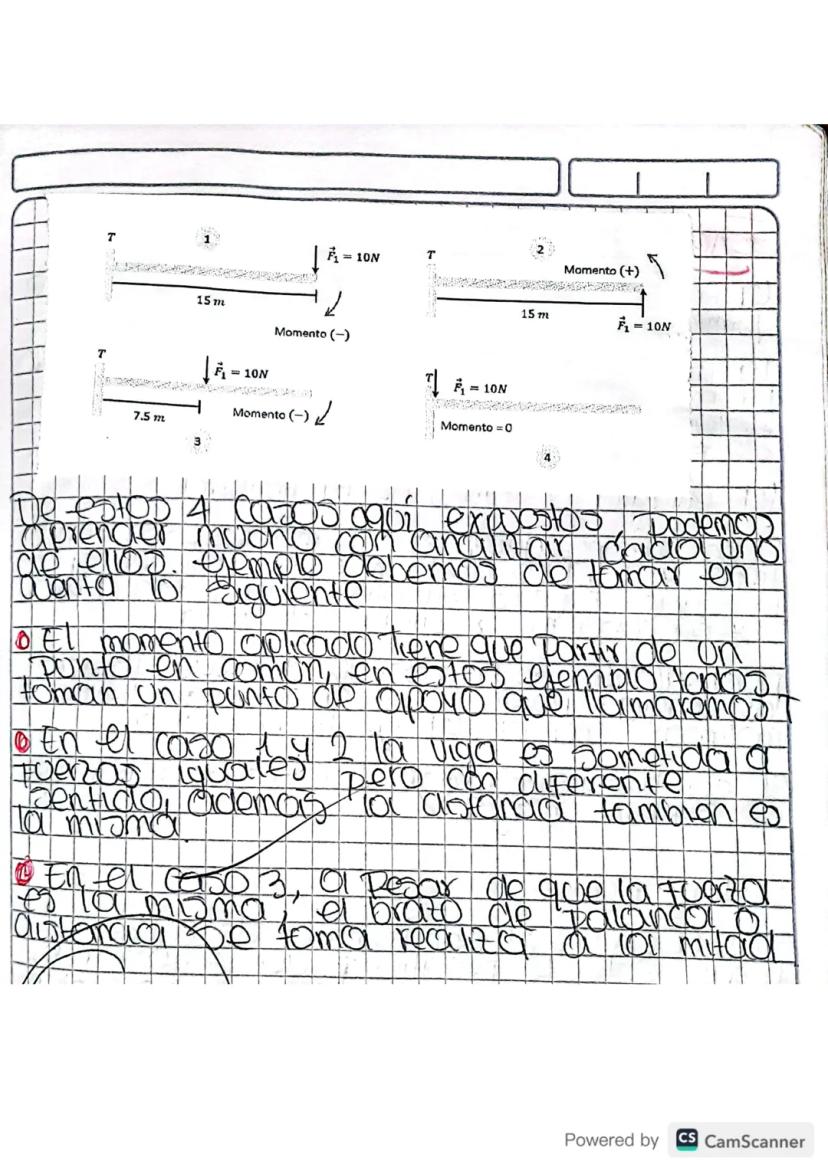 T
1
F₁ = 10N
15 m
Momento (−)
T
2
Momento (+)
15 m
F₁ = 10N
T
F₁ = 10N
7.5 m
Momento (−)
3
T
F₁ = 10N
Momento = 0
4
De estos 4 casos aquí expuestos, podemos
aprender mucho con analizar cada uno
de ellos. ejemplo debemos de tomar en
cuenta lo siguiente
a El momento aplicado tiene que partir de un
punto en común, en estos ejemplo todos
toman un punto de apoyo que llamaremos T
b En el caso 1 y 2 la viga es sometida a
fuerzas iguales pero con diferente
sentido, además la distancia tambien es
la misma
c En el caso 3, a pesar de que la fuerza
es la misma, el brazo de palanca o
distancia se toma realiza a la mitad
Powered by CS CamScanner